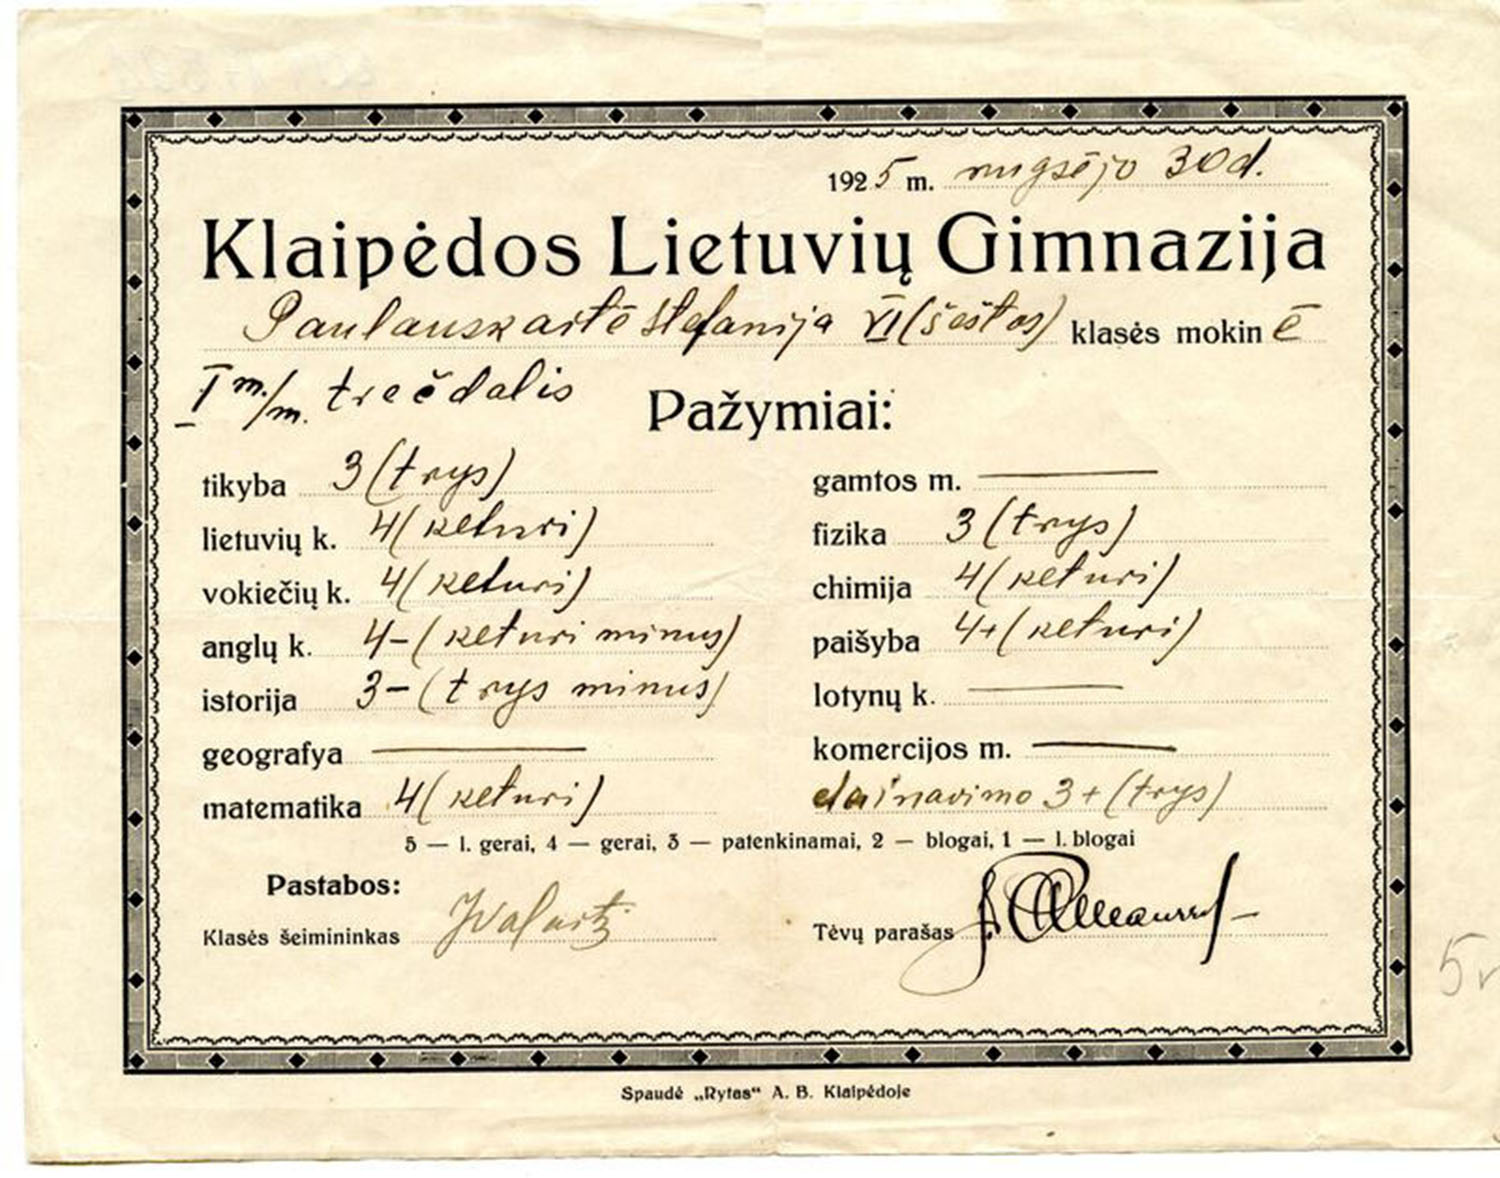 1925 m. rugsējo 30 d.
Klaipėdos Lietuvių Gimnazija
Paulauskaitē Stefanija VI (šeštos) klasės mokinē
I m/m. trečdalis
Pažymiai:
tikyba 3 (trys)
lietuvių k. 4 (keturi)
vokiečių k. 4 (keturi)
anglų k. 4- (keturi minus)
istorija 3- (trys minus)
geografya —
matematika 4 (keturi)
gamtos m. —
fizika 3 (trys)
chimija 4 (keturi)
paišyba 4+ (keturi)
lotynų k. —
komercijos m. —
dainavimo 3+ (trys)
5 — l. gerai, 4 — gerai, 3 — patenkinamai, 2 — blogai, 1 — l. blogai
Pastabos:
Klasės šeimininkas
Tėvų parašas
Spaudė „Rytas“ A. B. Klaipėdoje